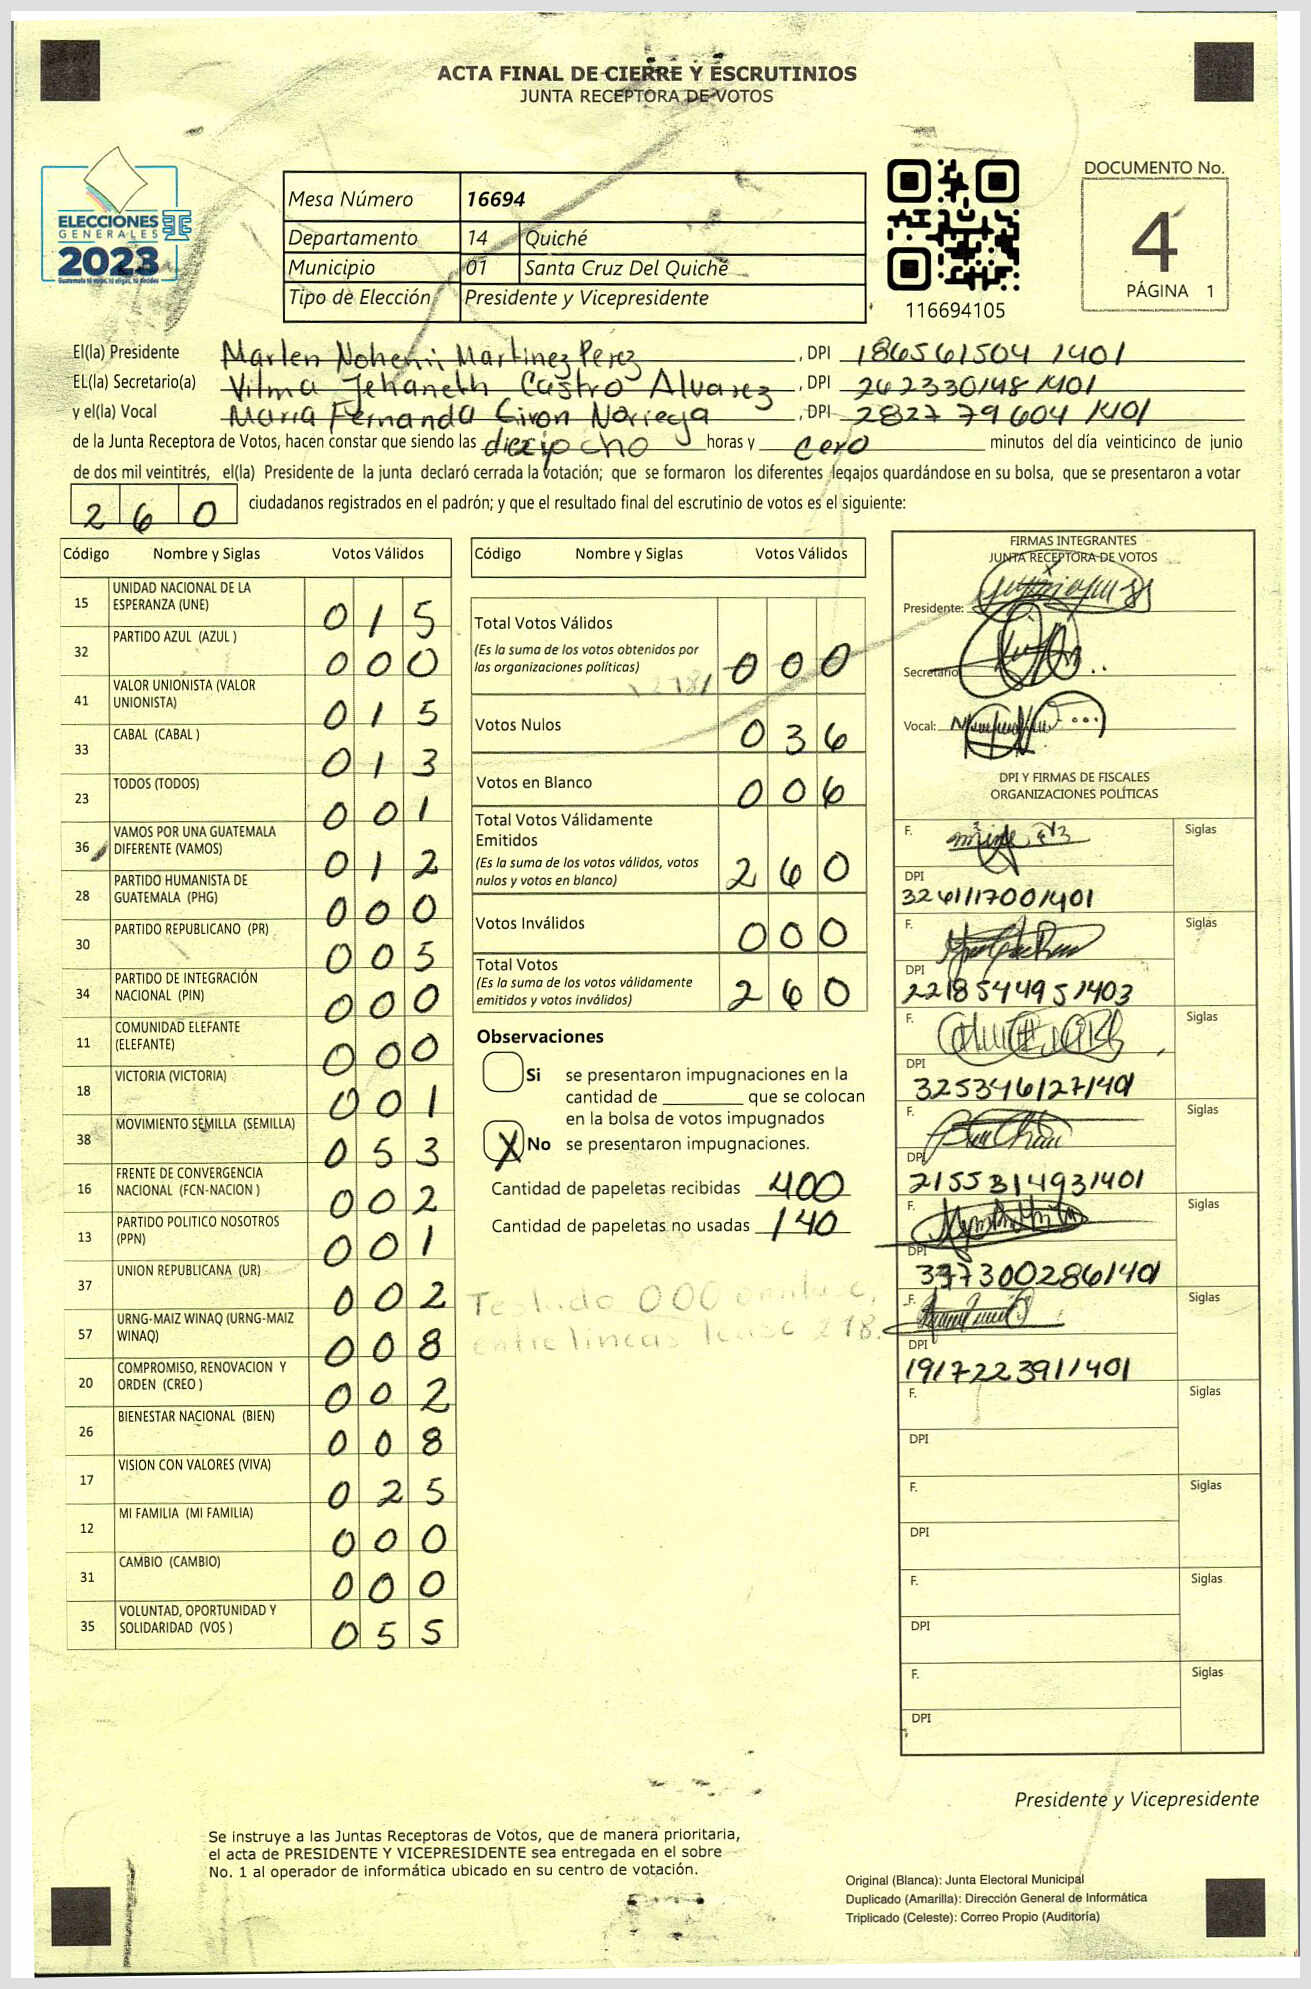 ACTA FINAL DE CIERRE Y ESCRUTINIOS
JUNTA RECEPTORA DE VOTOS
ELECCIONES
GENERALES
2023
Mesa Número 16694
Departamento 14 Quiché
Municipio 01 Santa Cruz Del Quiché
Tipo de Elección Presidente y Vicepresidente
116694105
DOCUMENTO No.
4
PÁGINA 1
El(la) Presidente Marlen Nohemi Martinez Perez, DPI 186561504 1401
EL(la) Secretario(a) Vilma Jehaneth Castro Alvarez, DPI 262330148 1401
y el(la) Vocal Maria Fernanda Giron Noriega, DPI 2827 79604 1401
de la Junta Receptora de Votos, hacen constar que siendo las dieciocho horas y cero minutos del día veinticinco de junio
de dos mil veintitrés, el(la) Presidente de la junta declaró cerrada la votación; que se formaron los diferentes legajos quardándose en su bolsa, que se presentaron a votar
260 ciudadanos registrados en el padrón; y que el resultado final del escrutinio de votos es el siguiente:
Código Nombre y Siglas Votos Válidos
15 UNIDAD NACIONAL DE LA ESPERANZA (UNE) 015
32 PARTIDO AZUL (AZUL ) 000
41 VALOR UNIONISTA (VALOR UNIONISTA) 015
33 CABAL (CABAL ) 013
23 TODOS (TODOS) 001
36 VAMOS POR UNA GUATEMALA DIFERENTE (VAMOS) 012
28 PARTIDO HUMANISTA DE GUATEMALA (PHG) 000
30 PARTIDO REPUBLICANO (PR) 005
34 PARTIDO DE INTEGRACIÓN NACIONAL (PIN) 000
11 COMUNIDAD ELEFANTE (ELEFANTE) 000
18 VICTORIA (VICTORIA) 001
38 MOVIMIENTO SEMILLA (SEMILLA) 053
16 FRENTE DE CONVERGENCIA NACIONAL (FCN-NACION ) 002
13 PARTIDO POLITICO NOSOTROS (PPN) 001
37 UNION REPUBLICANA (UR) 002
57 URNG-MAIZ WINAQ (URNG-MAIZ WINAQ) 008
20 COMPROMISO, RENOVACION Y ORDEN (CREO ) 002
26 BIENESTAR NACIONAL (BIEN) 008
17 VISION CON VALORES (VIVA) 025
12 MI FAMILIA (MI FAMILIA) 000
31 CAMBIO (CAMBIO) 000
35 VOLUNTAD, OPORTUNIDAD Y SOLIDARIDAD (VOS ) 055
Código Nombre y Siglas Votos Válidos
Total Votos Válidos 000
(Es la suma de los votos obtenidos por
las organizaciones políticas)
Votos Nulos 036
Votos en Blanco 006
Total Votos Válidamente
Emitidos
(Es la suma de los votos válidos, votos
nulos y votos en blanco) 260
Votos Inválidos 000
Total Votos
(Es la suma de los votos válidamente
emitidos y votos inválidos) 260
Observaciones
Si se presentaron impugnaciones en la
cantidad de que se colocan
en la bolsa de votos impugnados
X No se presentaron impugnaciones.
Cantidad de papeletas recibidas 400
Cantidad de papeletas no usadas 140
Testado 000
entre lineas 218.
FIRMAS INTEGRANTES
JUNTA RECEPTORA DE VOTOS
Presidente:
Secretario
Vocal:
DPI Y FIRMAS DE FISCALES
ORGANIZACIONES POLÍTICAS
F. Siglas
DPI
3261117001401
F. Siglas
DPI
2218544951403
F. Siglas
DPI
3253461271401
F. Siglas
DPI
2155314931401
F. Siglas
DPI
3973002861401
F. Siglas
DPI
1917223911401
F. Siglas
DPI
F. Siglas
DPI
F. Siglas
DPI
F. Siglas
DPI
Presidente y Vicepresidente
Se instruye a las Juntas Receptoras de Votos, que de manera prioritaria,
el acta de PRESIDENTE Y VICEPRESIDENTE sea entregada en el sobre
No. 1 al operador de informática ubicado en su centro de votación.
Original (Blanca): Junta Electoral Municipal
Duplicado (Amarilla): Dirección General de Informática
Triplicado (Celeste): Correo Propio (Auditoría)